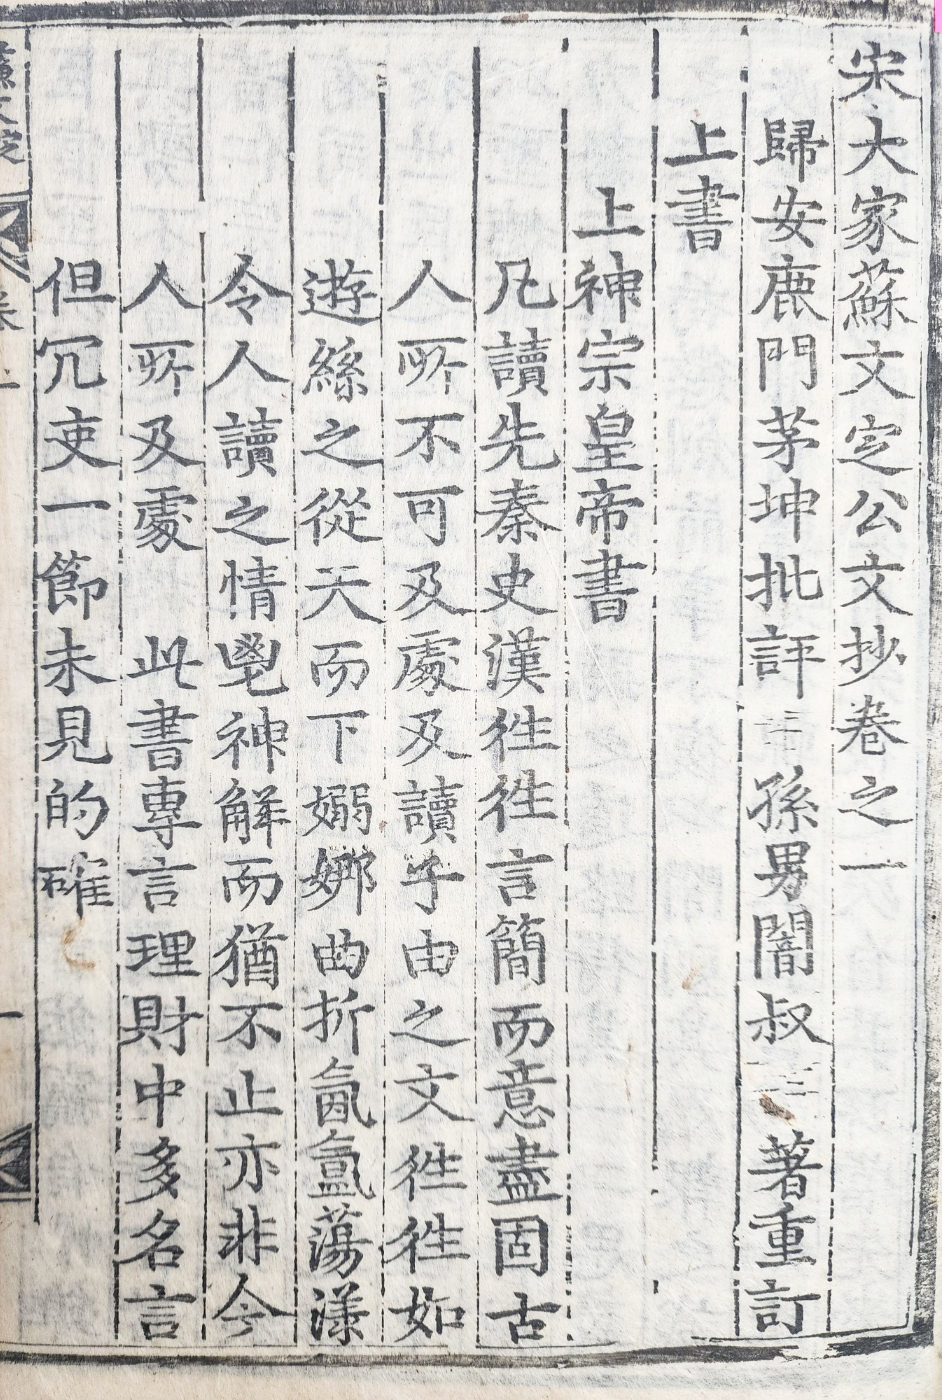 宋大家蘇文定公文抄卷之一
歸安鹿門茅坤批評 孫男闇叔 著重訂
上書
上神宗皇帝書
凡讀先秦史漢徃徃言簡而意盡固古
人所不可及處及讀子由之文徃徃如
遊絲之從天而下嫋娜曲折氤氳蕩漾
令人讀之情鬯神解而猶不止亦非今
人所及處 此書專言理財中多名言
但冗吏一節未見的確
蘇文定 卷一 一